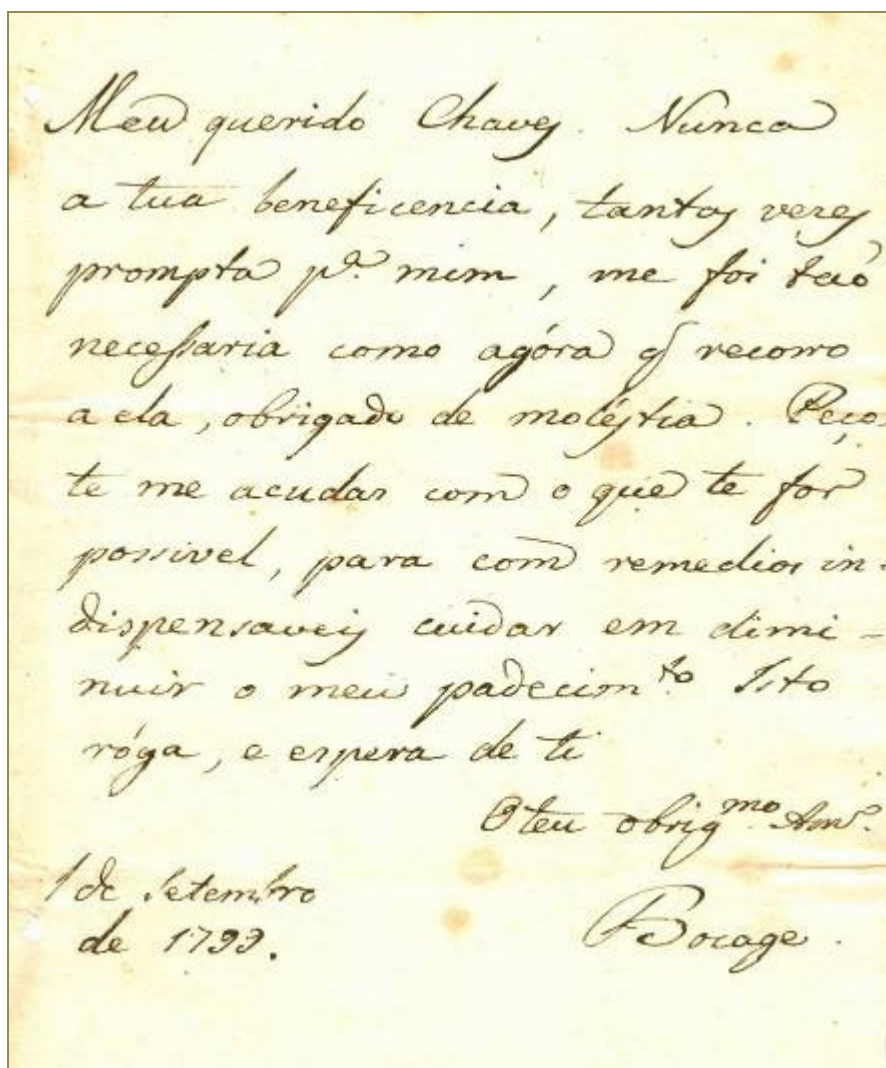 Meu querido Chaves. Nunca
a tua beneficencia, tantas vezes
prompta p.ª mim, me foi taõ
necessaria como agóra q recorro
a ela, obrigado de moléstia. Peço-
te me acudas com o que te for
possivel, para com remedios in-
dispensaveis cuidar em dimi-
nuir o meu padecim.to Isto
róga, e espera de ti
O teu obrig.mo Am.o
1 de Setembro
de 1799.
Bocage.